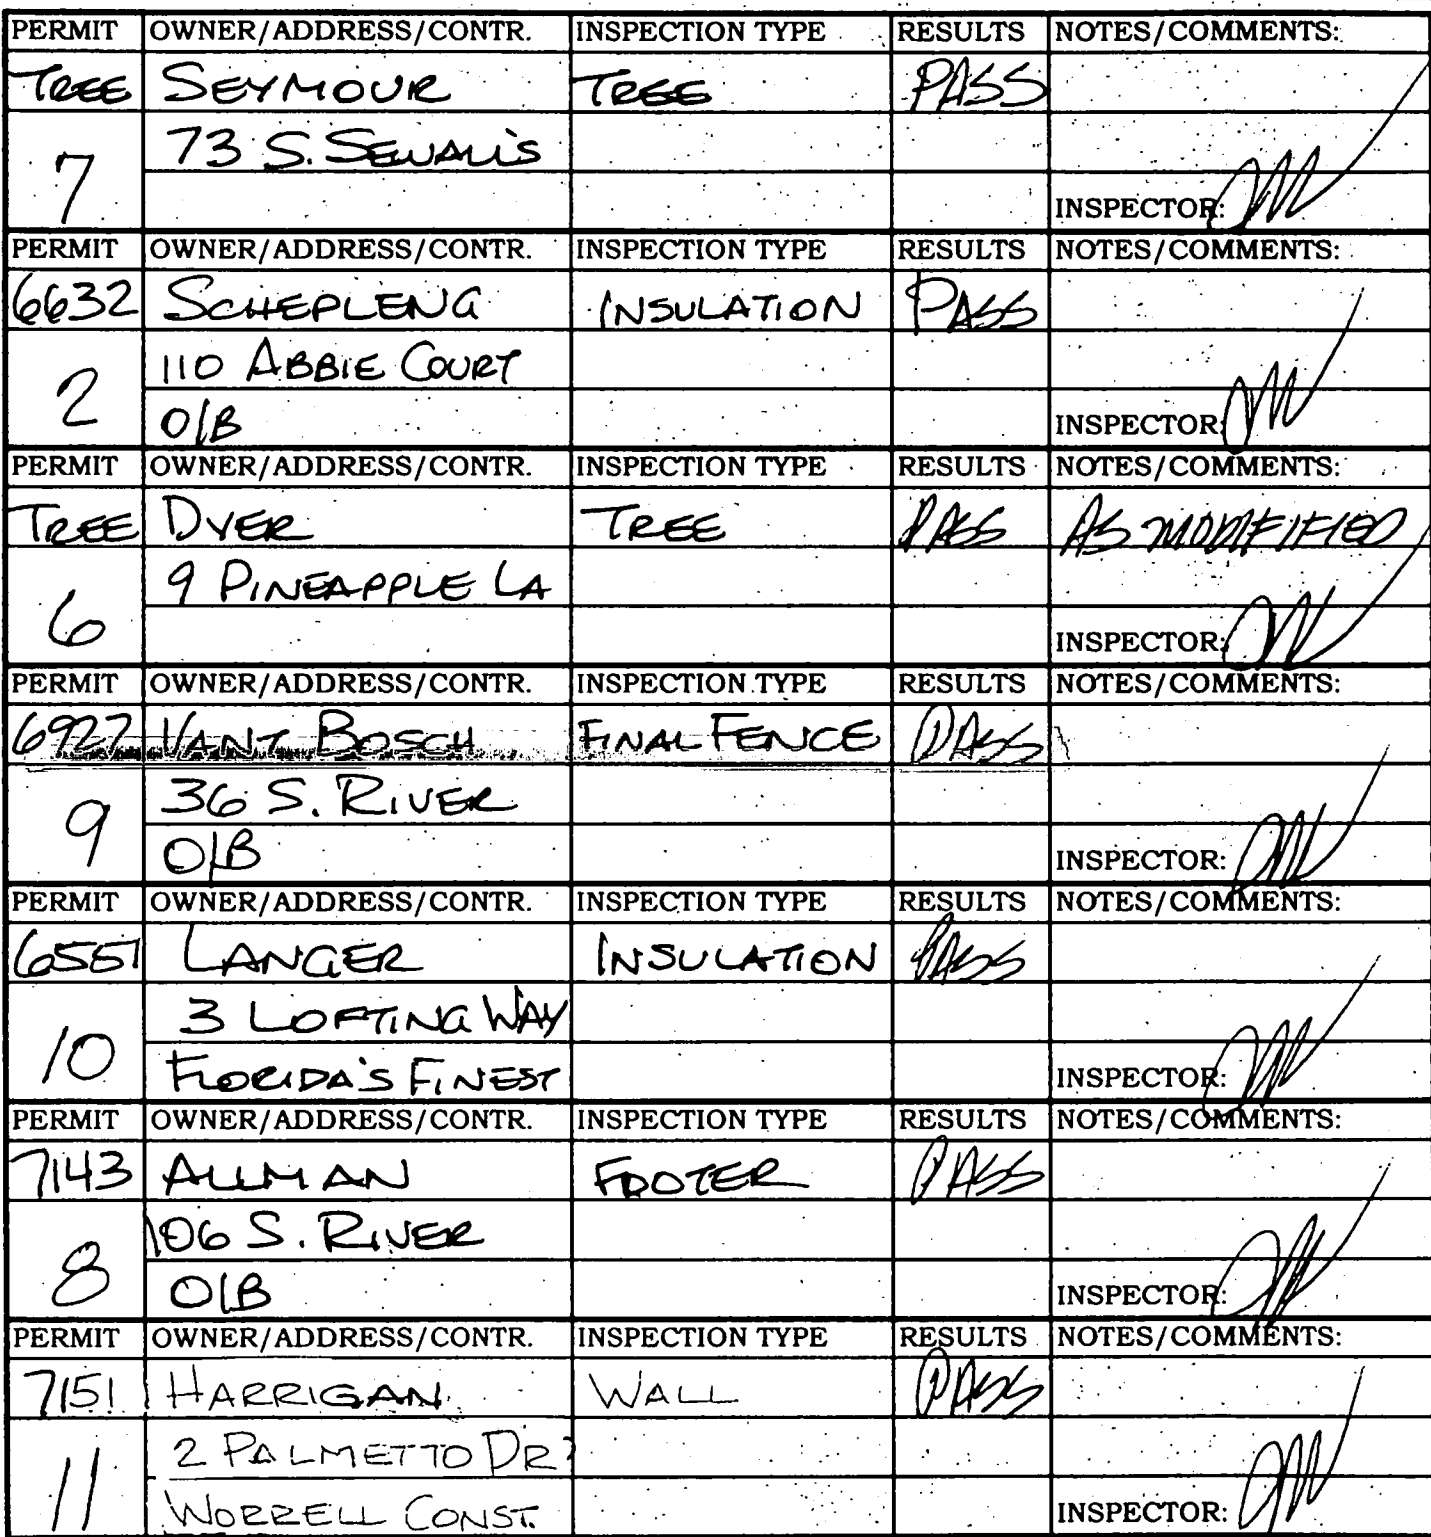 PERMIT OWNER/ADDRESS/CONTR. INSPECTION TYPE RESULTS NOTES/COMMENTS:
TREE SEYMOUR TREE PASS
7 73 S. SEWALL'S
INSPECTOR:
PERMIT OWNER/ADDRESS/CONTR. INSPECTION TYPE RESULTS NOTES/COMMENTS:
6632 SCHEPLENG INSULATION PASS
2 110 ABBIE COURT
O/B INSPECTOR:
PERMIT OWNER/ADDRESS/CONTR. INSPECTION TYPE RESULTS NOTES/COMMENTS:
TREE DYER TREE PASS AS MODIFIFIED
6 9 PINEAPPLE LA
INSPECTOR:
PERMIT OWNER/ADDRESS/CONTR. INSPECTION TYPE RESULTS NOTES/COMMENTS:
6927 VANT BOSCH FINAL FENCE PASS
9 36 S. RIVER
O/B INSPECTOR:
PERMIT OWNER/ADDRESS/CONTR. INSPECTION TYPE RESULTS NOTES/COMMENTS:
6551 LANGER INSULATION PASS
10 3 LOFTING WAY
FLORIDA'S FINEST INSPECTOR:
PERMIT OWNER/ADDRESS/CONTR. INSPECTION TYPE RESULTS NOTES/COMMENTS:
7143 ALLMAN FOOTER PASS
8 106 S. RIVER
O/B INSPECTOR:
PERMIT OWNER/ADDRESS/CONTR. INSPECTION TYPE RESULTS NOTES/COMMENTS:
7151 HARRIGAN WALL PASS
11 2 PALMETTO DR
WORRELL CONST. INSPECTOR: